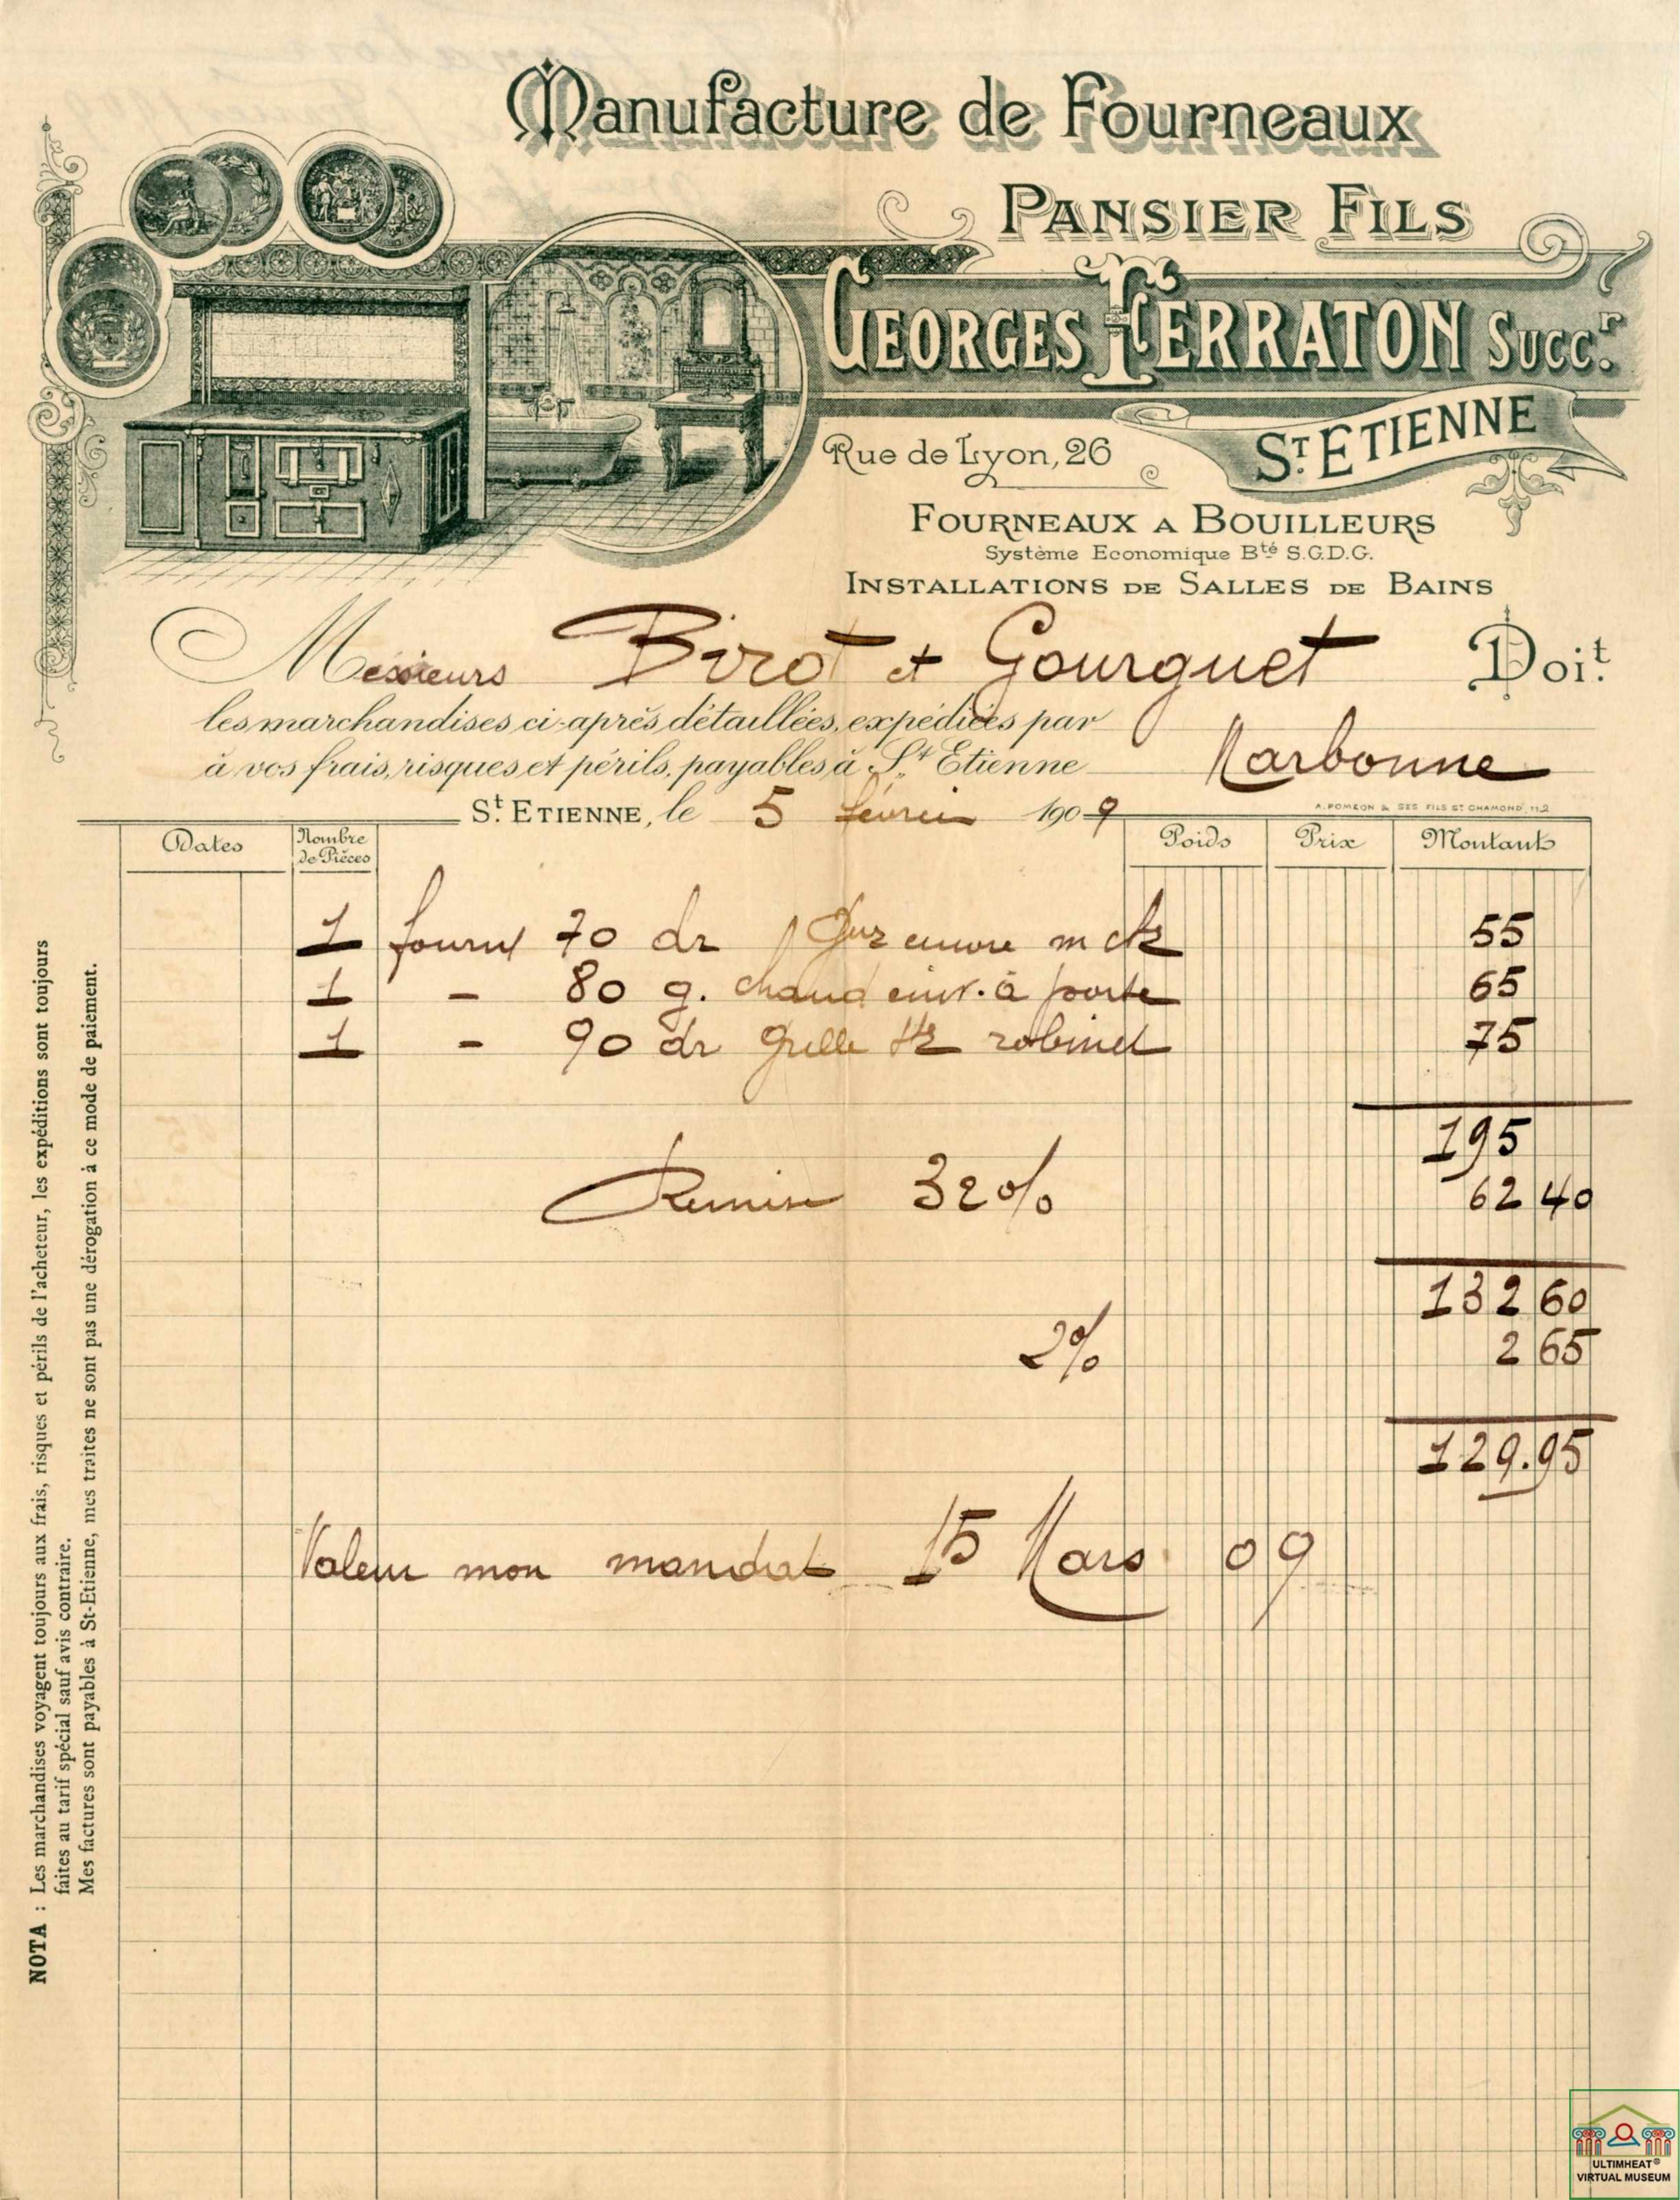 Manufacture de Fourneaux
PANSIER FILS
GEORGES FERRATON SUCC.r
Rue de Lyon, 26
ST. ETIENNE
FOURNEAUX A BOUILLEURS
Système Economique Bté S.G.D.G.
INSTALLATIONS DE SALLES DE BAINS
Messieurs Birot et Gourguet Doi.t
les marchandises ci-après détaillées, expédiées par
à vos frais, risques et périls, payables à St Etienne Narbonne
St. ETIENNE, le 5 février 1909
A. POMÉON & SES FILS ST CHAMOND
Dates Nombre de Pièces Poids Prix Montants
1 70 dr cuivre 55
1 - 80 g. chaud cuiv. à porte 65
1 - 90 dr grille robinet 75
195
Remise 32% 62 40
132 60
2% 2 65
129.95
Valeur mon mandat 15 Mars 09
NOTA : Les marchandises voyagent toujours aux frais, risques et périls de l'acheteur, les expéditions sont toujours
faites au tarif spécial sauf avis contraire.
Mes factures sont payables à St-Etienne, mes traites ne sont pas une dérogation à ce mode de paiement.
ULTIMHEAT®
VIRTUAL MUSEUM